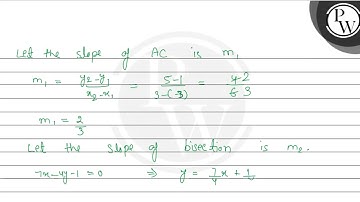 PW
Let the slope of AC is m₁
m₁ = y₂-y₁/x₂-x₁ = 5-1/3-(-3) = 4 2/6 3
m₁ = 2/3
Let the slope of bisection is m₂.
7x-4y-1=0 ⇒ y = 7/4 x +